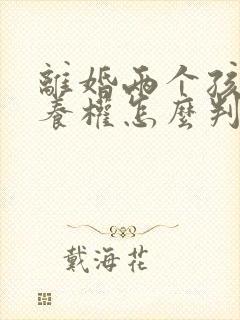 離婚兩个孩
養權怎麼判
戴海花